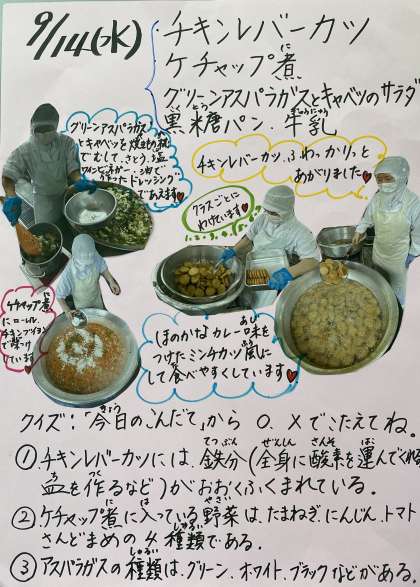 9/14(水)
チキンレバーカツ
ケチャップ煮
グリーンアスパラガスとキャベツのサラダ
黒糖パン、牛乳
グリーンアスパラガス
とキャベツを
でむして、さとう、塩
ワインビネガー、油で
ドレッシング
であえます♥
チキンレバーカツ、ふわっかりっと
あがりました♥
クラスごとに
わけています♥
ケチャップ煮
で味つけ
しています♥
ほのかなカレー味を
つけたミンチカツ風に
して食べやすくしています♥
クイズ:「今日のこんだて」から ○、×でこたえてね。
①チキンレバーカツには、鉄分(全身に酸素を運んでくれる
血を作るなど)がおおくふくまれている。
②ケチャップ煮に入っている野菜は、たまねぎ、にんじん、トマト
さんどまめの4種類である。
③アスパラガスの種類は、グリーン、ホワイト、ブラックなどがある。